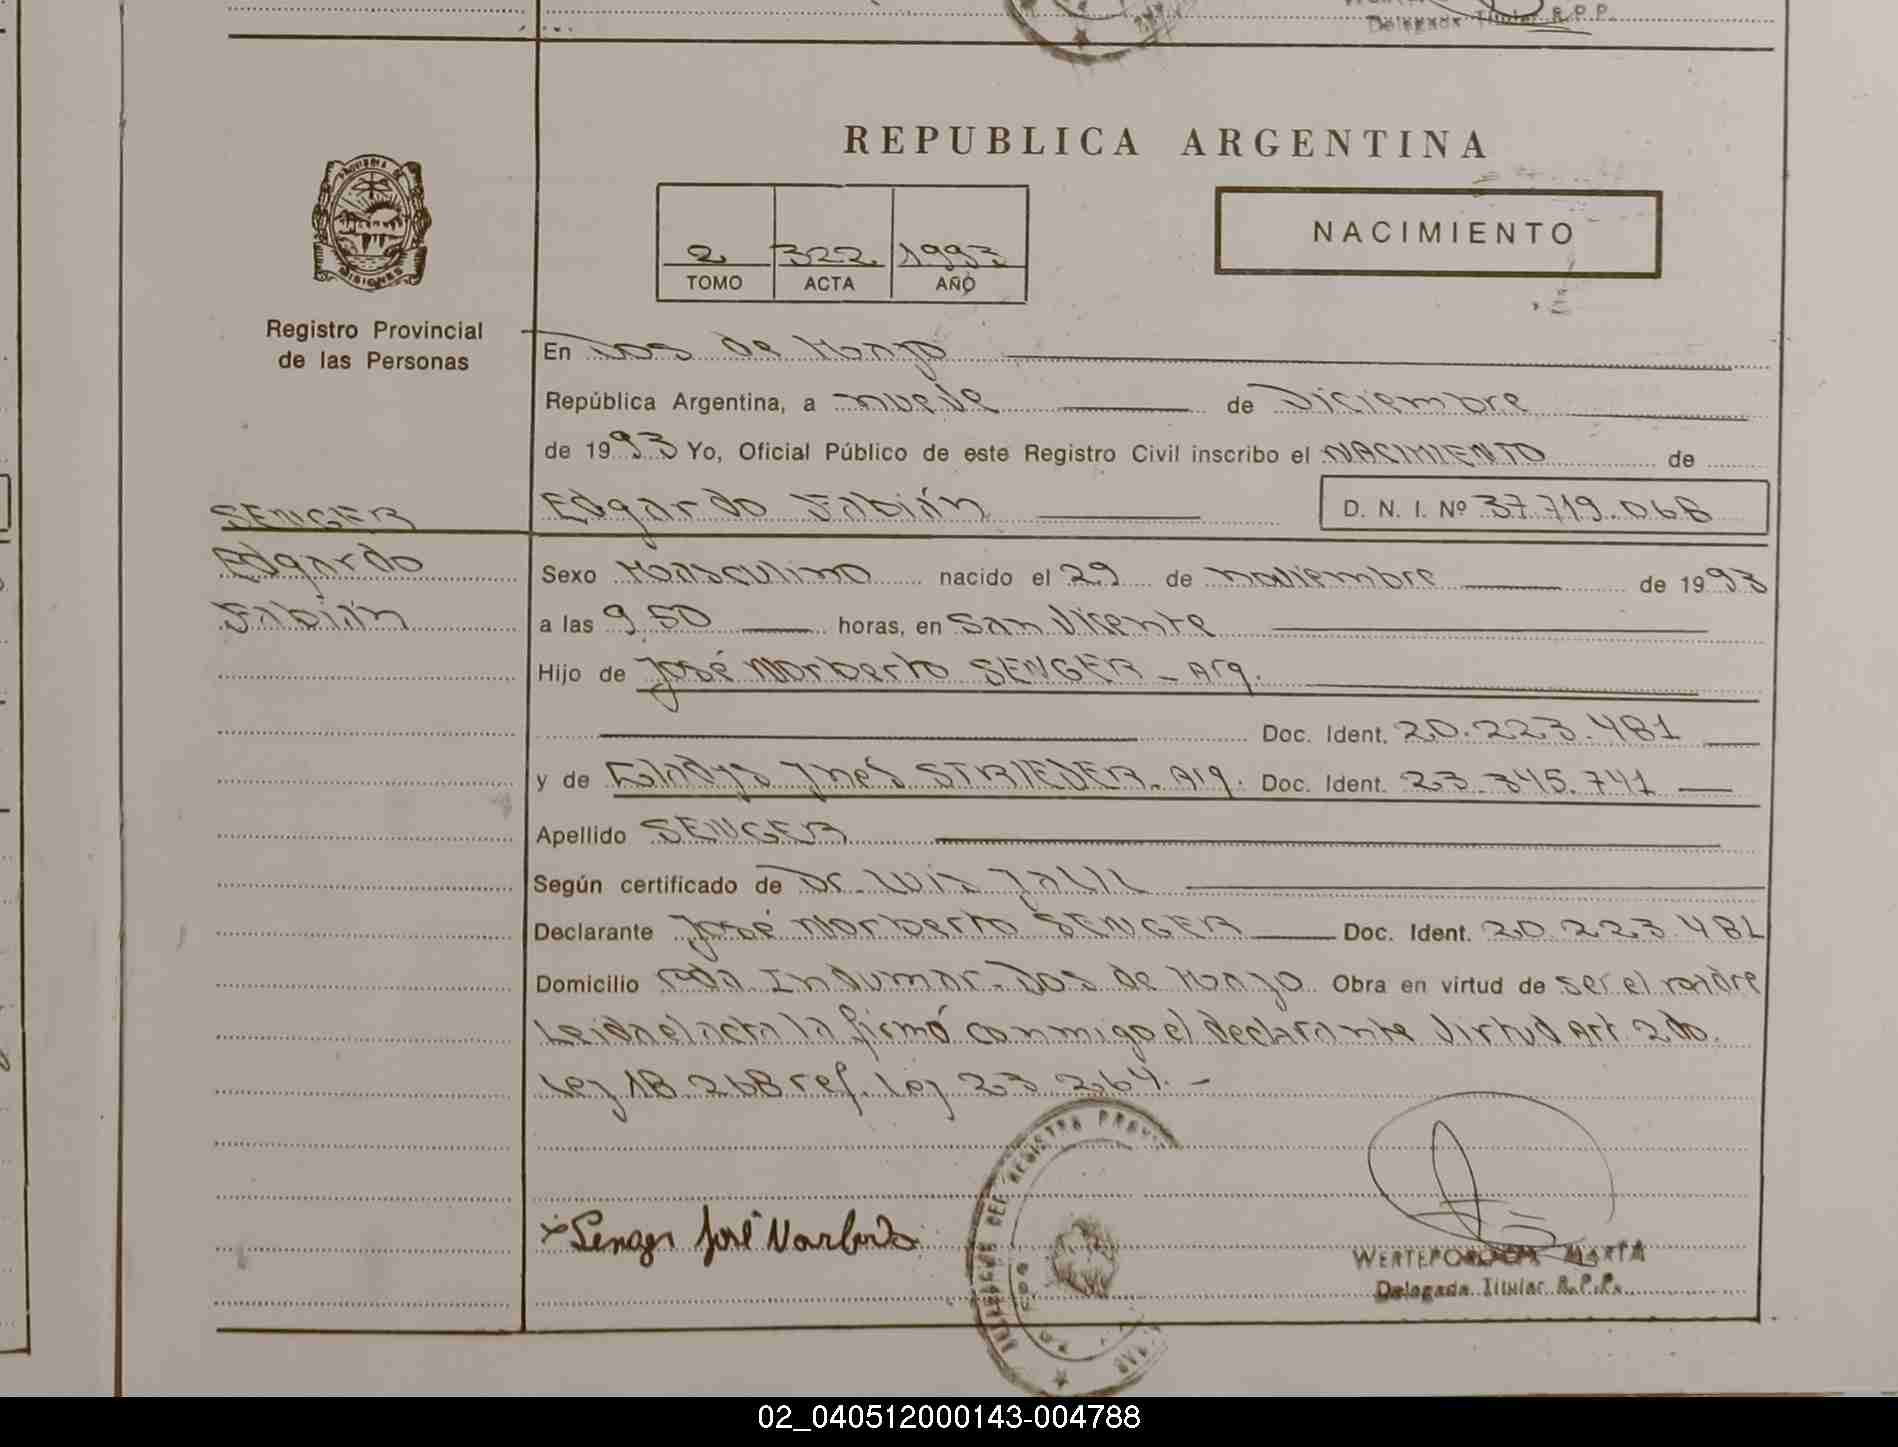 Delegada Titular R.P.P.
REPUBLICA ARGENTINA
PROVINCIA DE
MISIONES
2 322 1993
TOMO ACTA AÑO
NACIMIENTO
Registro Provincial
de las Personas
En Dos de Mayo
República Argentina, a nueve de Diciembre
de 1993 Yo, Oficial Público de este Registro Civil inscribo el NACIMIENTO de
SENGER
Edgardo
Fabián
Edgardo Fabián D. N. I. Nº 37.719.068
Sexo Masculino nacido el 29 de noviembre de 1993
a las 9,50 horas, en San Vicente
Hijo de José Norberto SENGER - Arg.
Doc. Ident. 20.223.481
y de Gladys Ines STRIEDER. Arg. Doc. Ident. 23.345.741
Apellido SENGER
Según certificado de Dr. Luis JALIL
Declarante José Norberto SENGER Doc. Ident. 20.223.481
Domicilio Indumar - Dos de Mayo Obra en virtud de ser el padre
Leida el acta la firmó conmigo el declarante virtud Art. 2do.
Ley 18.268 ref. Ley 23.264.-
x Senger José Norberto
REGISTRO
MARTA
Delegada Titular R.P.P.
02_040512000143-004788